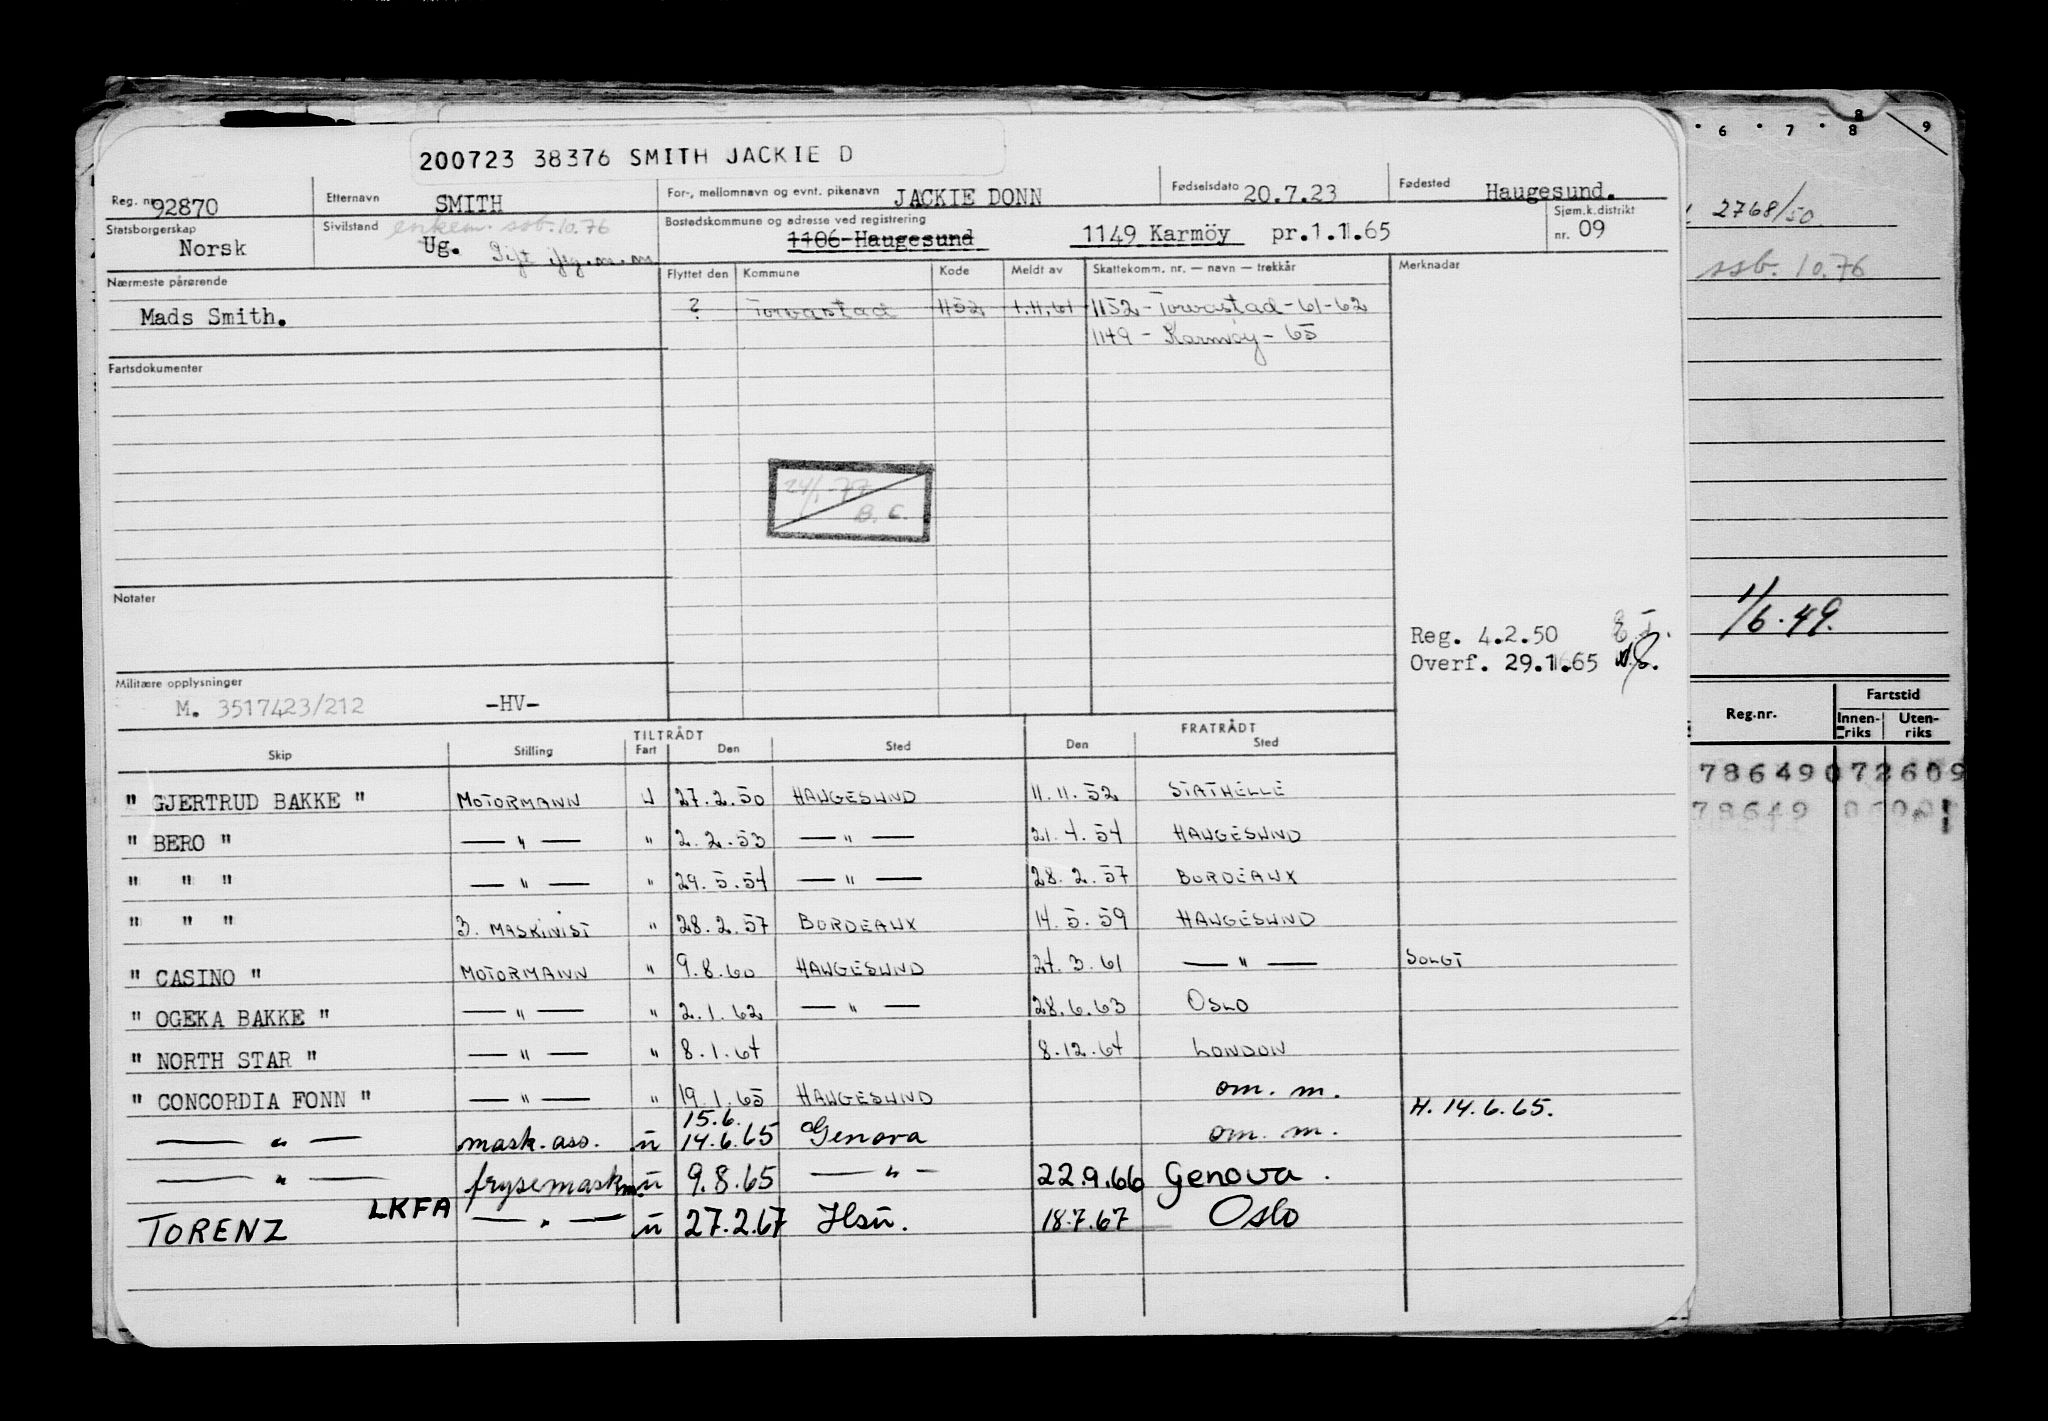 200723 38376 SMITH JACKIE D
Reg. nr. 92870
Etternavn SMITH
For-, mellomnavn og evnt. pikenavn JACKIE DONN
Fødselsdato 20.7.23
Fødested Haugesund.
Statsborgerskap Norsk
Sivilstand enkem. ssb. 10.76
Ug. Gift
Bostedskommune og adresse ved registrering
1106-Haugesund 1149 Karmöy pr.1.1.65
Sjøm.k.distrikt
nr. 09
Nærmeste pårørende
Mads Smith.
Flyttet den Kommune Kode Meldt av Skattekomm. nr. — navn — trekkår Merknader
? Torvastad 1152 1.11.61 1152 - Torvastad - 61-62
1149 - Karmöy - 65
Fartsdokumenter
24/1-77
B.C.
Notater
Reg. 4.2.50
Overf. 29.1.65
Militære opplysninger
M. 3517423/212 -HV-
TILTRÅDT FRATRÅDT
Skip Stilling Fart Den Sted Den Sted
" GJERTRUD BAKKE " MOTORMANN U 27.2.50 HAUGESUND 11.11.52 STATHELLE
" BERO " — " — " 2.2.53 — " — 21.4.54 HAUGESUND
" " " — " — " 29.5.54 — " — 28.2.57 BORDEAUX
" " " 3. MASKINIST " 28.2.57 BORDEAUX 14.5.59 HAUGESUND
" CASINO " MOTORMANN " 9.8.60 HAUGESUND 24.3.61 — " — SOLGT
" OGEKA BAKKE " — " — " 2.1.62 — " — 28.6.63 OSLO
" NORTH STAR " — " — " 8.1.64 8.12.64 LONDON
" CONCORDIA FONN " — " — " 19.1.65 HAUGESUND om. m.
H. 14.6.65.
15.6.
— " — mask. ass. u 14.6.65 Genova om. m.
— " — frysemaskm. u 9.8.65 — " — 22.9.66 Genova.
TORENZ LKFA — " — u 27.2.67 Hsu. 18.7.67 Oslo
6 7 8 9
8
2768/50
ssb. 10.76
1/6.49.
Reg.nr. Fartstid
Innen-riks Uten-riks
78649 072609
78649